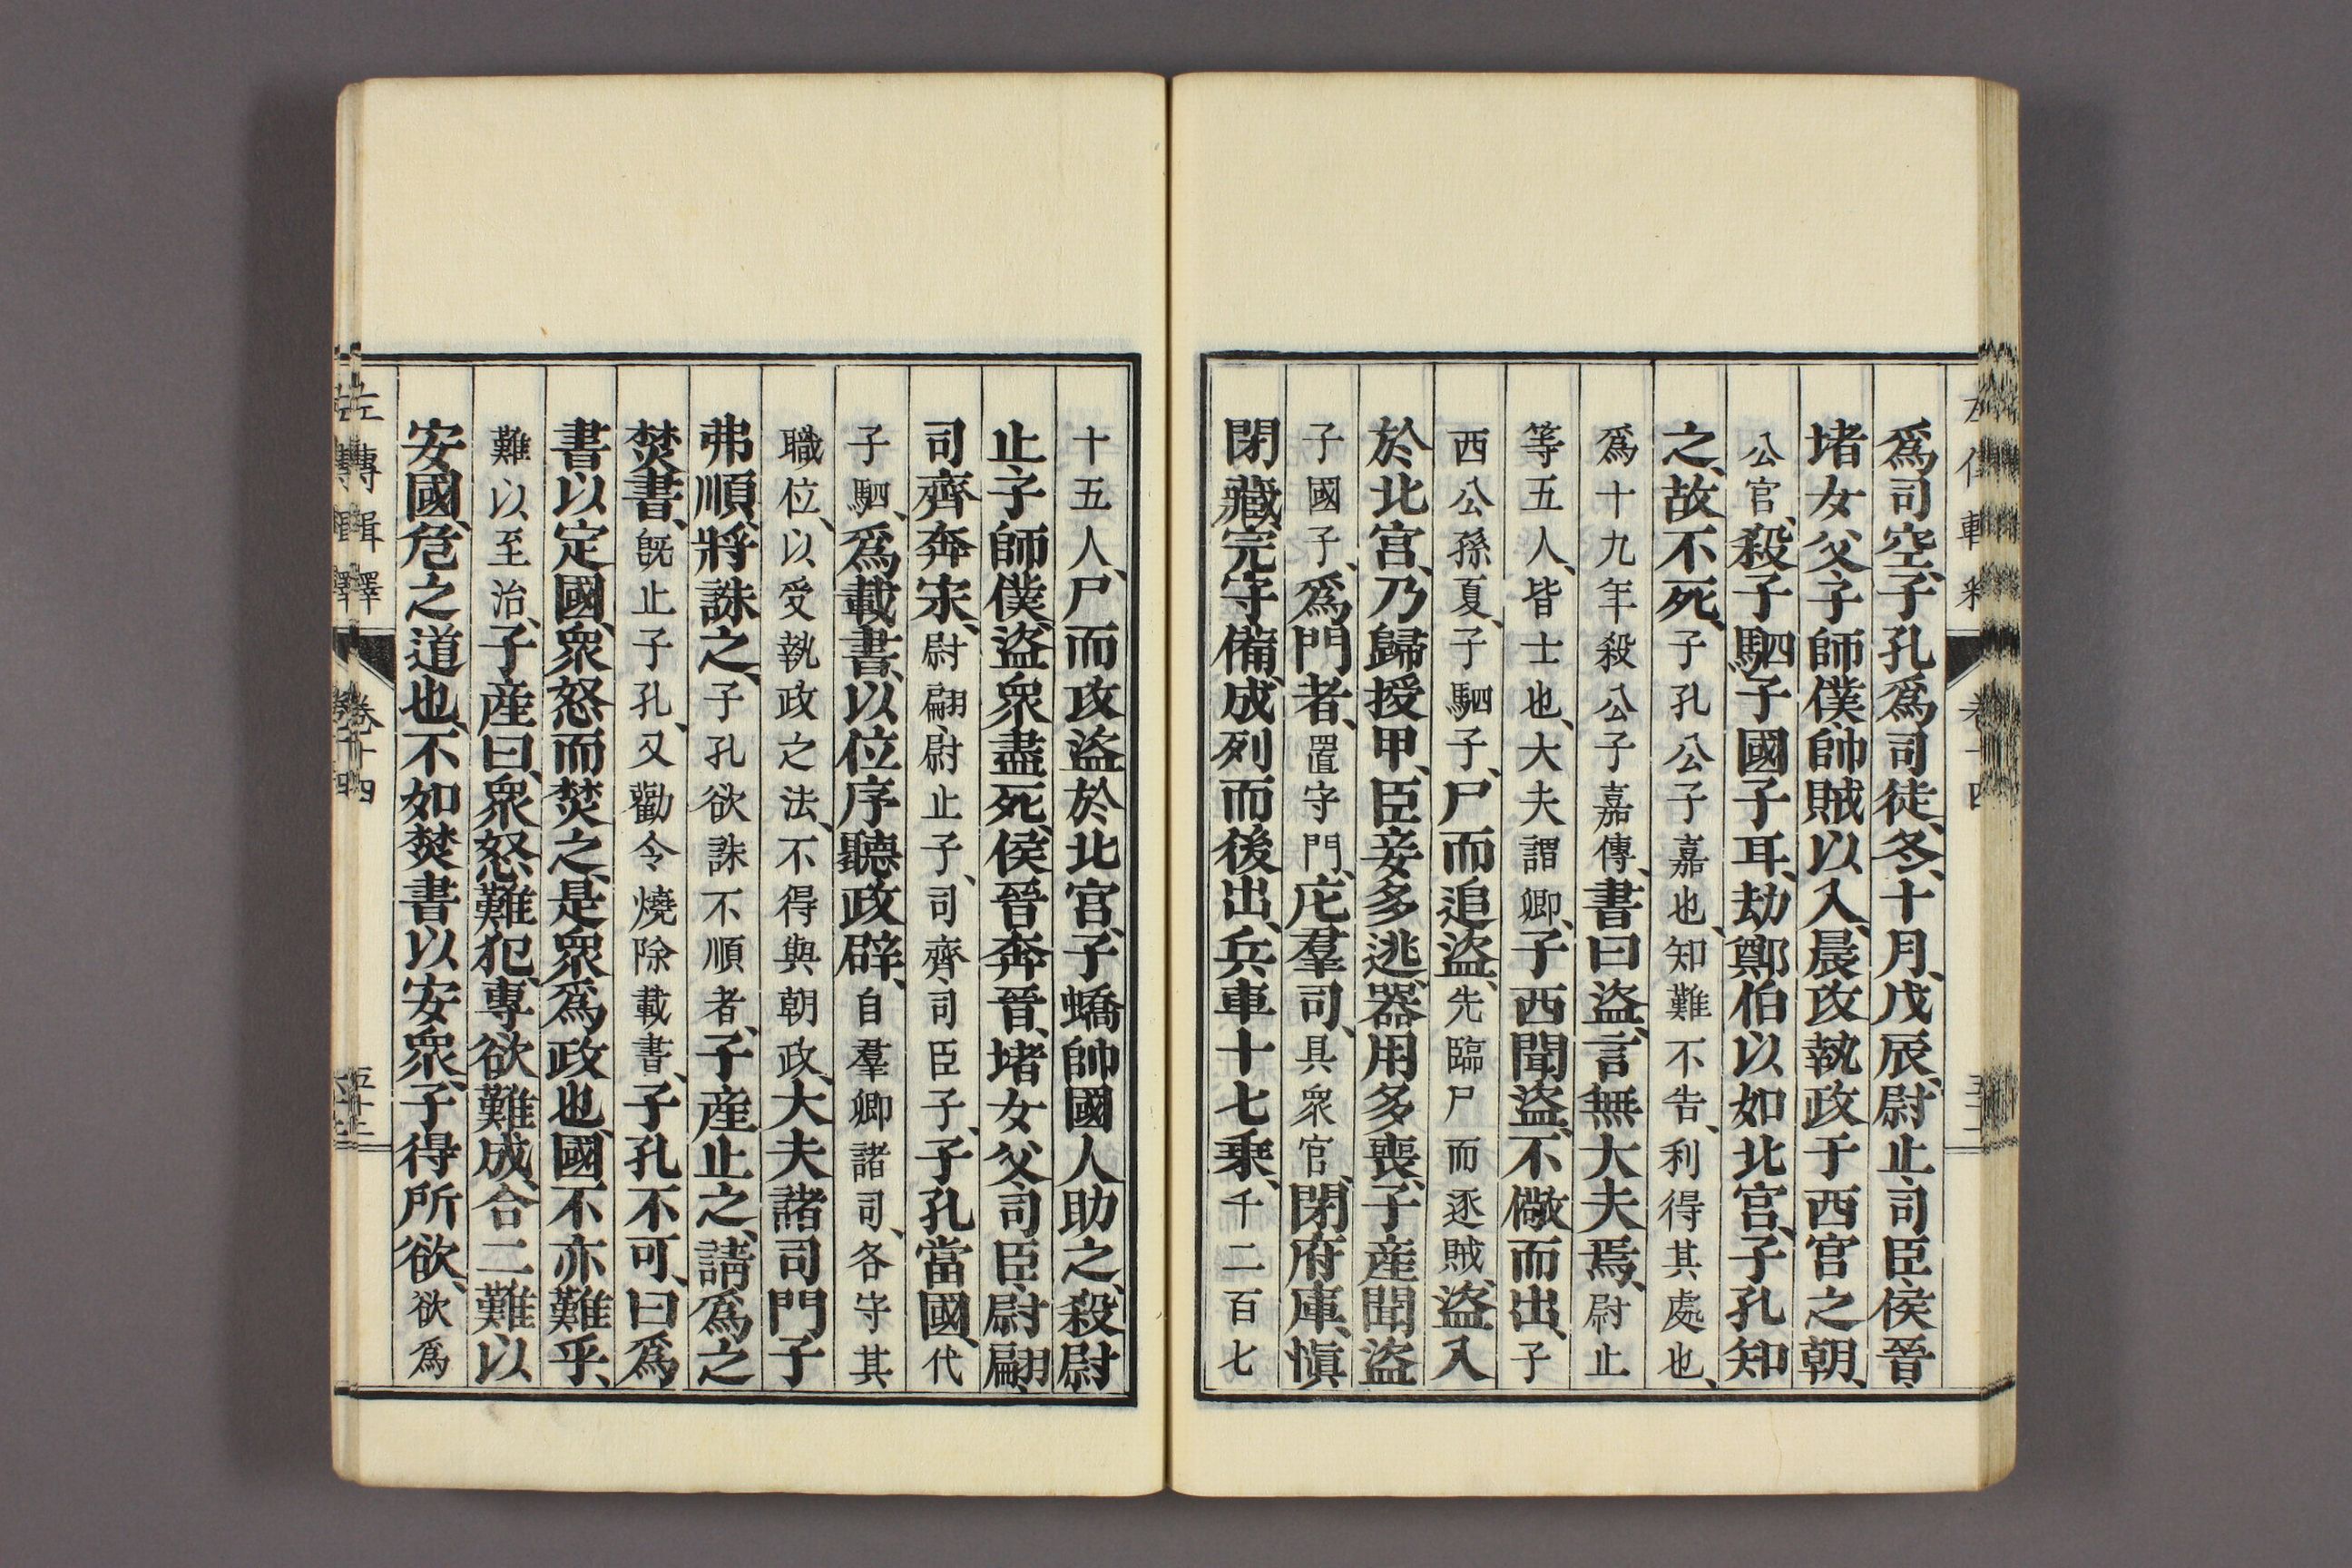 爲司空、子孔爲司徒、冬、十月、戊辰、尉止、司臣、侯晉、
堵女父、子師僕、帥賊以入、晨攻執政于西宮之朝、
公官、殺子駟、子國、子耳、劫鄭伯以如北宮、子孔知
之、故不死、子孔公子嘉也、知難不告、利得其處也、
爲十九年殺公子嘉傳、書曰盜、言無大夫焉、尉止
等五人、皆士也、大夫謂卿、子西聞盜、不儆而出、子
西公孫夏、子駟子、尸而追盜、先臨尸而逐賊、盜入
於北宮、乃歸授甲、臣妾多逃、器用多喪、子産聞盜
子國子、爲門者、置守門、庀羣司、具衆官、閉府庫、愼
閉藏、完守備、成列而後出、兵車十七乘、千二百七
十五人、尸而攻盜於北宮、子蟜帥國人助之、殺尉
止、子師僕、盜衆盡死、侯晉奔晉、堵女父、司臣、尉翩、
司齊奔宋、尉翩、尉止子、司齊、司臣子、子孔當國、代
子駟、爲載書、以位序聽政辟、自羣卿諸司、各守其
職位、以受執政之法、不得與朝政、大夫諸司門子
弗順、將誅之、子孔欲誅不順者、子産止之、請爲之
焚書、旣止子孔、又勸令燒除載書、子孔不可、曰爲
書以定國、衆怒而焚之、是衆爲政也、國不亦難乎、
難以至治、子産曰、衆怒難犯、專欲難成、合二難以
安國、危之道也、不如焚書以安衆、子得所欲、欲爲
左傳輯釋
卷十四